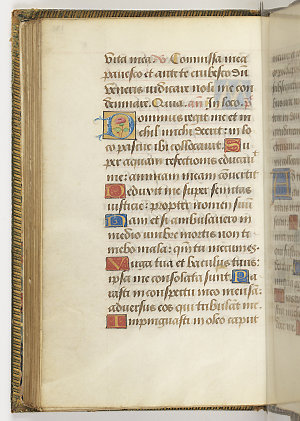 vita mea. Commissa mea
pavesco et ante te erubesco dum
veneris iudicare noli me con
demnare. Quia. an. In loco. p
Dominus regit me et ni
chil michi deerit: in lo
co pascue ibi collocavit. Su
per aquam refectionis educavit
me: animam meam convertit
Deduxit me super semitas
iusticie: propter nomen suum
Nam et si ambulavero in
medio umbre mortis non ti
mebo mala: qm tu mecum es.
Virga tua et baculus tuus:
ipsa me consolata sunt. Pa
rasti in conspectu meo mensam
adversus eos qui tribulant me.
Impinguasti in oleo caput